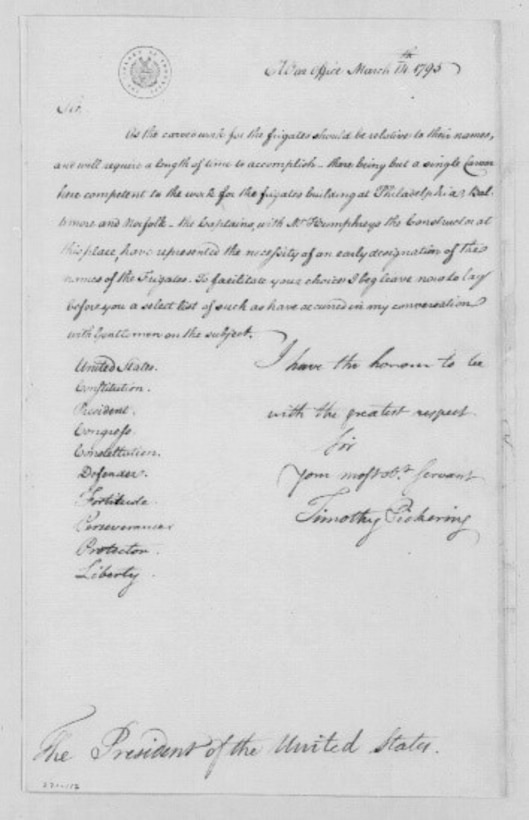 War Office March 14th 1795
Sir,
As the carved work for the frigates should be relative to their names,
and will require a length of time to accomplish - there being but a single Carver
here competent to the work for the frigates building at Philadelphia, Bal-
timore and Norfolk - the Captains, with Mr Humphreys the Constructor at
this place, have represented the necessity of an early designation of the
names of the Frigates. To facilitate your choice I beg leave now to lay
before you a select list of such as have occurred in my conversation
with Gentlemen on the subject.
United States.
Constitution.
President.
Congress.
Constellation.
Defender.
Fortitude.
Perseverance
Protector.
Liberty.
I have the honour to be
with the greatest respect
Sir
Your most obt Servant
Timothy Pickering
The President of the United States.